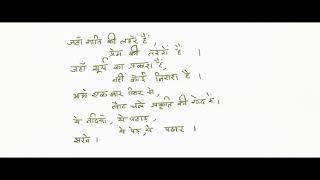 जहाँ शांति की लहरें हैं,
प्रेम की तरंगें हैं ।
जहाँ सूर्य का प्रकाश है
नहीं कोई निराशा है ।
एक बार फिर से,
लौट चलें प्रकृति की गोद में,
ये नदियाँ, ये पहाड़,
ये पेड़, ये पठार ।